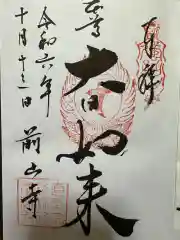 奉拝
本尊
大日如来
令和六年
十月十三日
前山寺